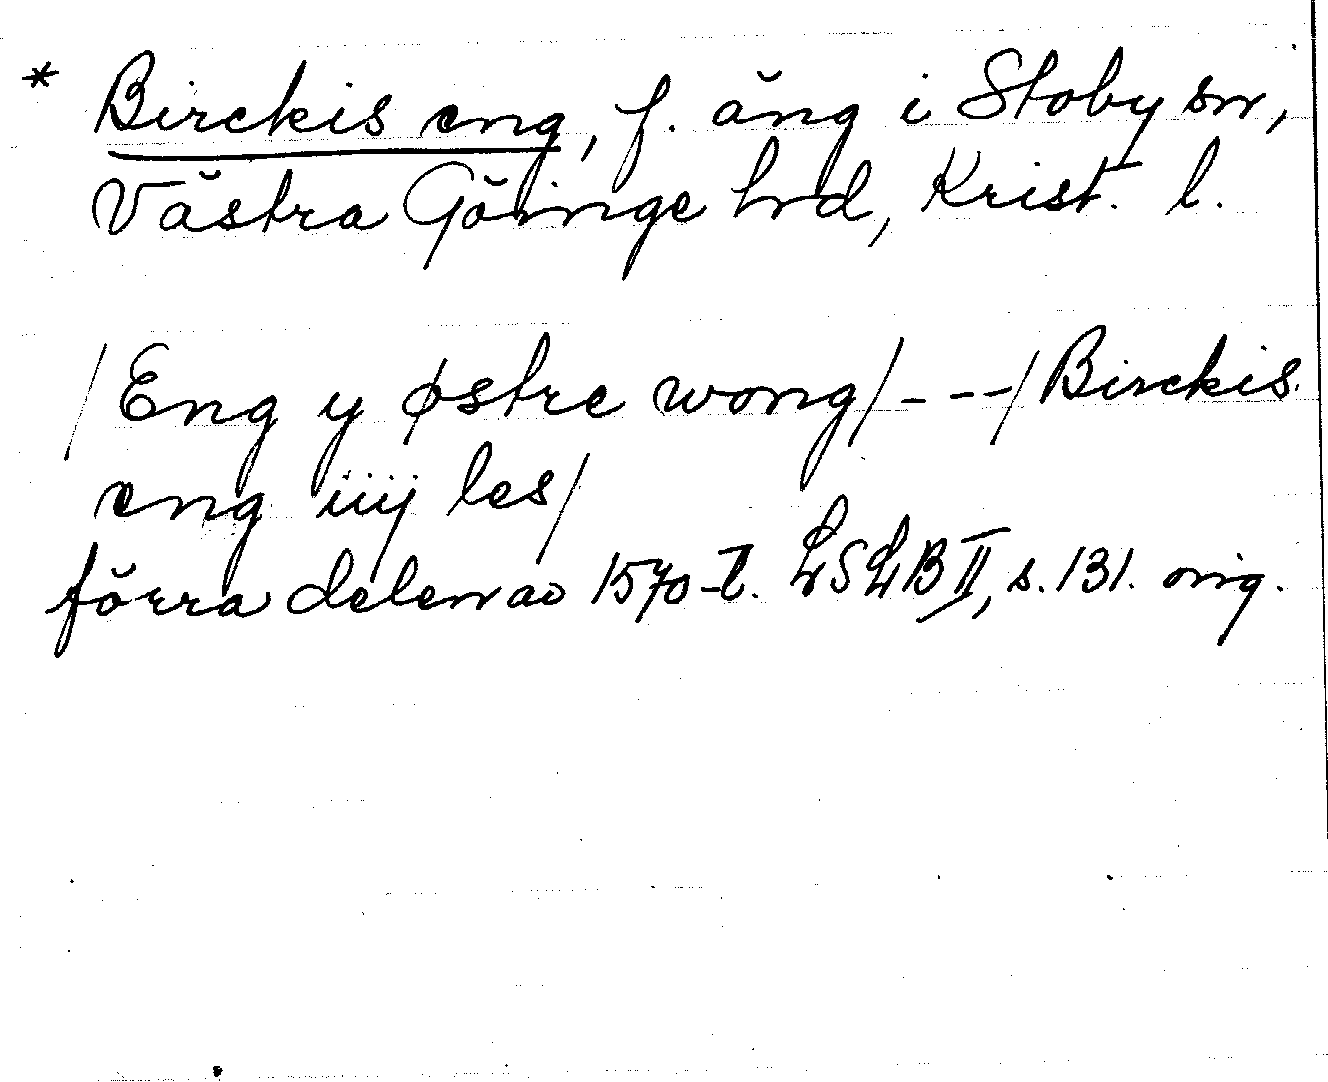 * Birckis eng, f. äng i Stoby sn,
Västra Göinge hrd, Krist. l.
/Eng y østre wong/---/Birckis
eng iiij les/
förra delen av 1570-t. LSLB II, s. 131. orig.